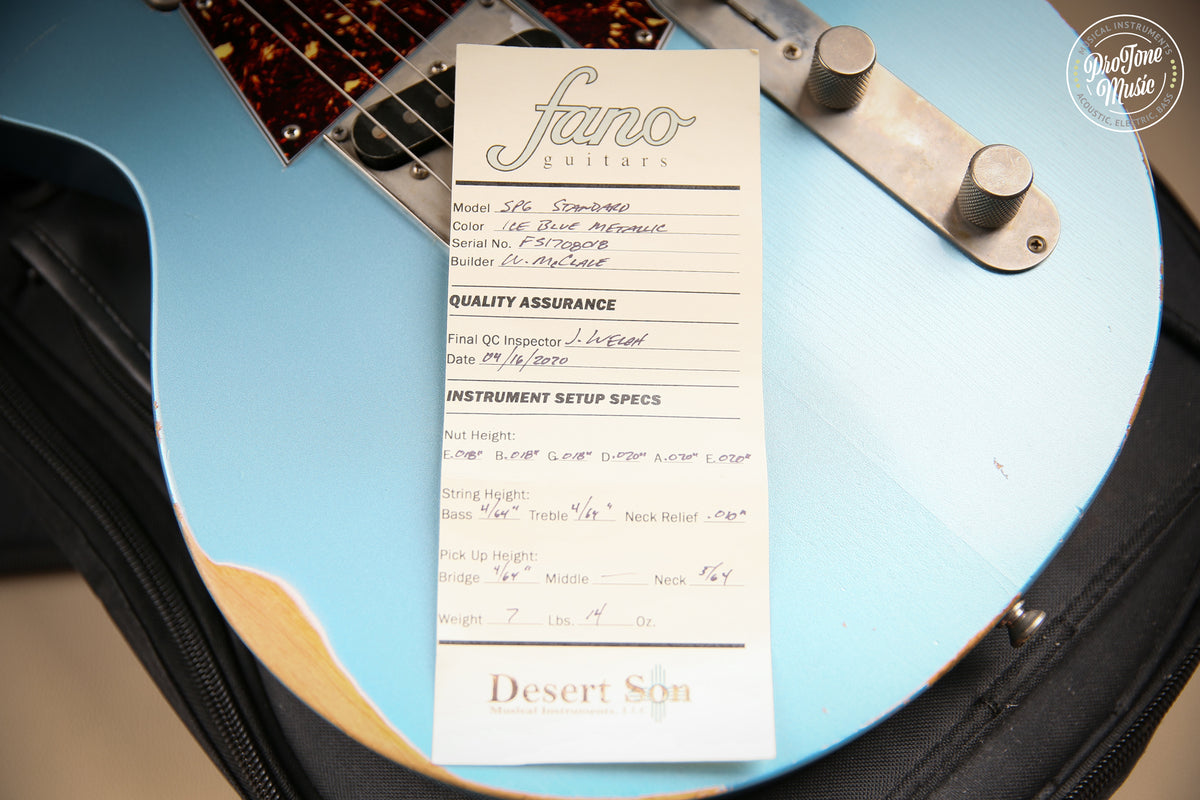 fano
guitars
Model SP6 STANDARD
Color ICE BLUE METALLIC
Serial No. FS1708018
Builder W. McCLALE
QUALITY ASSURANCE
Final QC Inspector J. WELCH
Date 04/16/2020
INSTRUMENT SETUP SPECS
Nut Height:
E .018" B .018" G .018" D .020" A .020" E .020"
String Height:
Bass 4/64" Treble 4/64" Neck Relief .010"
Pick Up Height:
Bridge 4/64" Middle — Neck 5/64
Weight 7 Lbs. 14 Oz.
Desert Son
Musical Instruments, LLC
MUSICAL INSTRUMENTS
ProTone
Music
ACOUSTIC, ELECTRIC, BASS